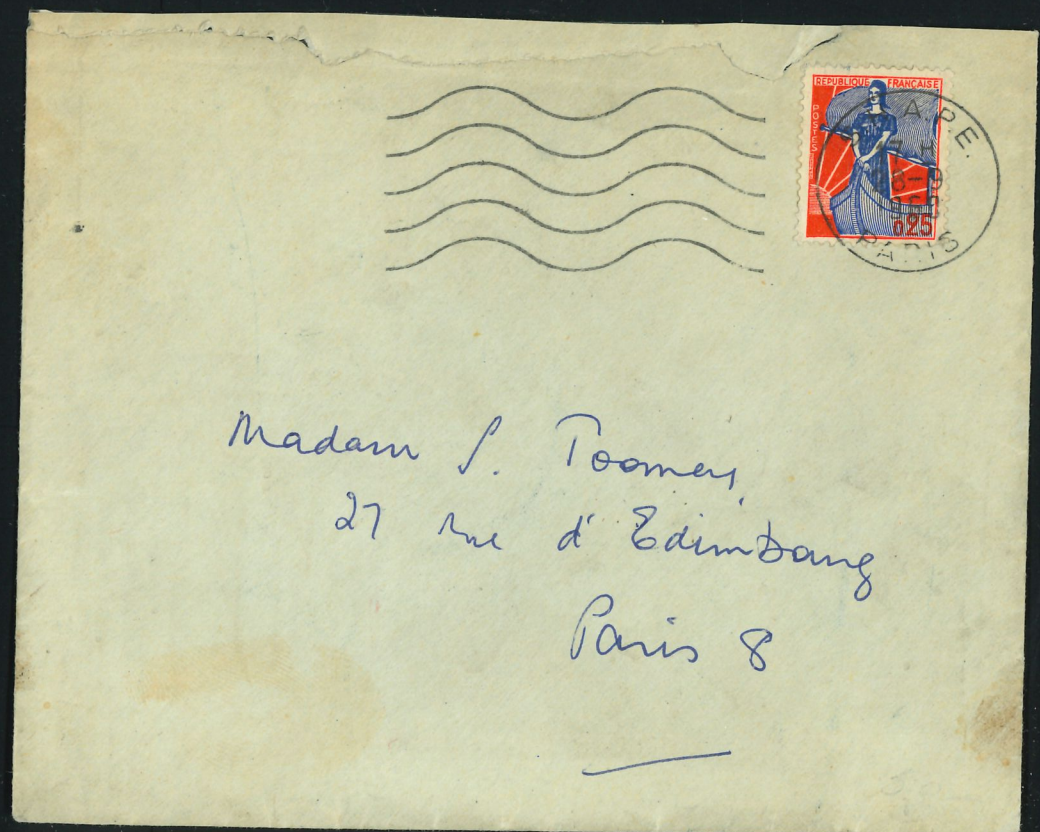 REPUBLIQUE FRANÇAISE
POSTES
A.P.E.
8-9
0,25
PARIS
Madam S. Toomey,
27 rue d'Edimbourg
Paris 8